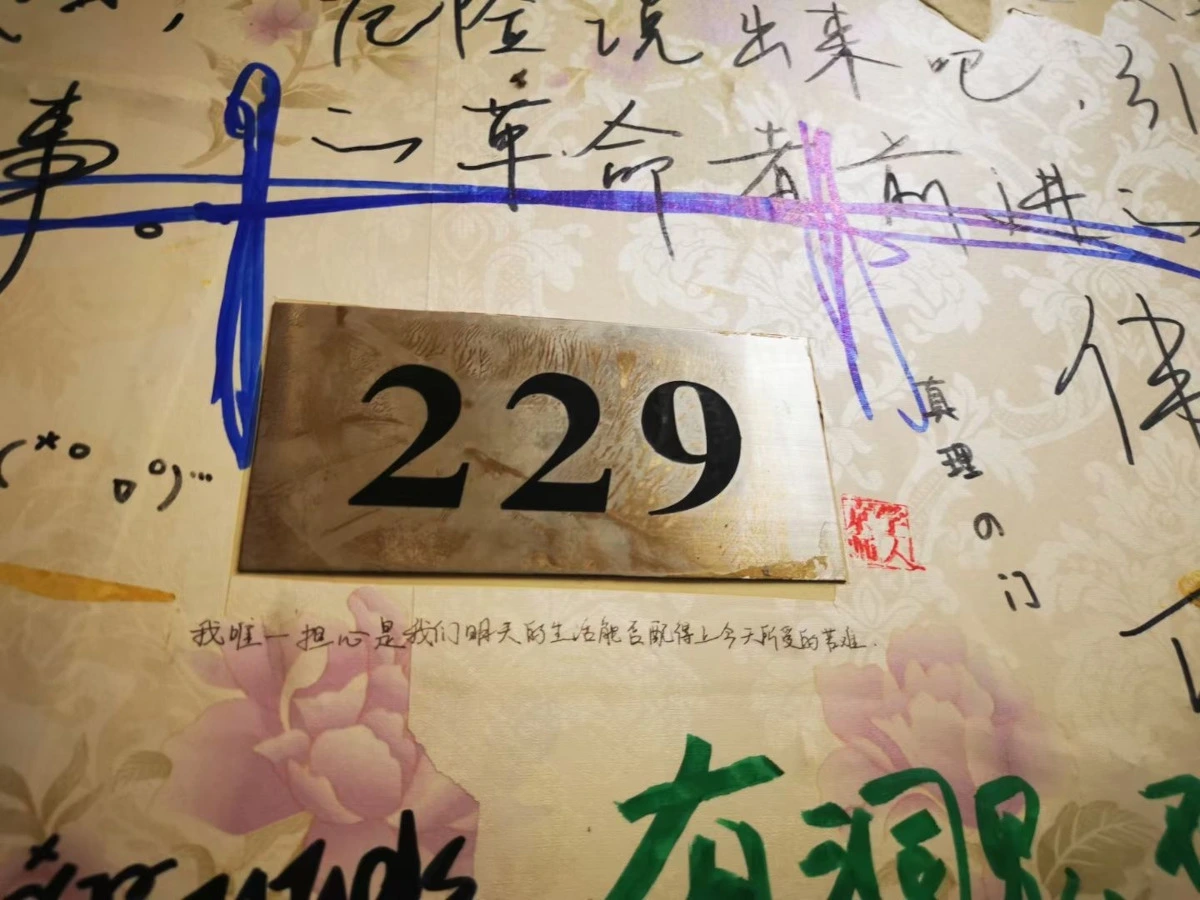 危险说出来吧,引
事 二革命者前进之
229
真理の门
我唯一担心是我们明天的生活能否配得上今天所受的苦难.
有洞见